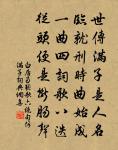 世傳滿子是人名
臨就刑時曲始成
一曲四詞歌八迭
從頭便是斷腸聲
白居易聽歌六絕句何
滿子詞典網集